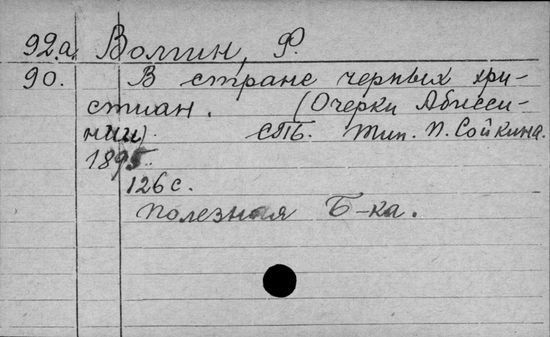 92.а. Волгин, Ф.
90. В стране черных хри-
стиан. (Очерки Абисси-
нии). СПБ. Тип. П. Сойкина.
1895.
126 с.
Полезная Б-ка.